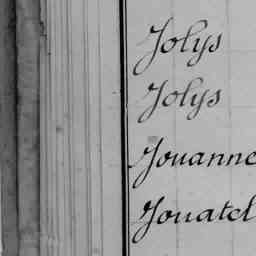 Jolys
Jolys
Jouanne
Jouatel